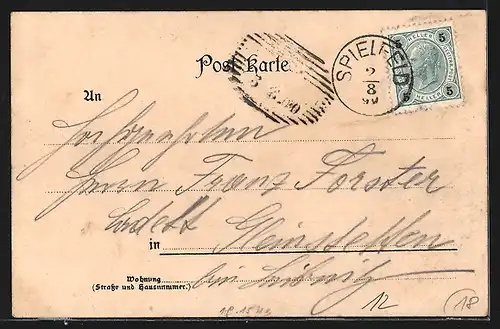 Post Karte
SPIELFELD
2
8
99
HELLER
5 5
5 5
An
Hochwohlgeboren
Herrn Franz Forster
Cadett
in Gleinstätten
bei Leibnitz
Wohnung
(Straße und Hausnummer.)
12
18